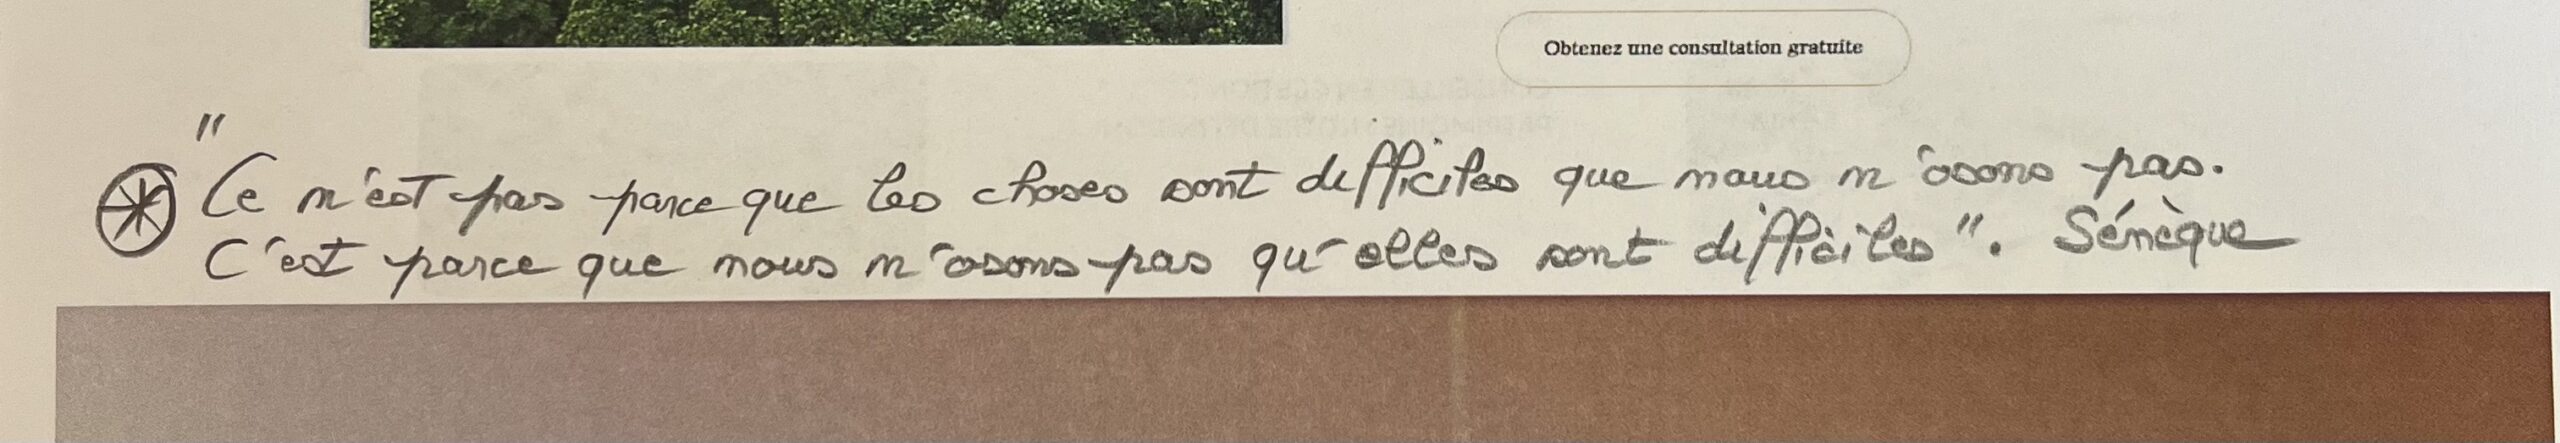 Obtenez une consultation gratuite
"Ce n'est pas parce que les choses sont difficiles que nous n'osons pas.
C'est parce que nous n'osons pas qu'elles sont difficiles". Sénèque